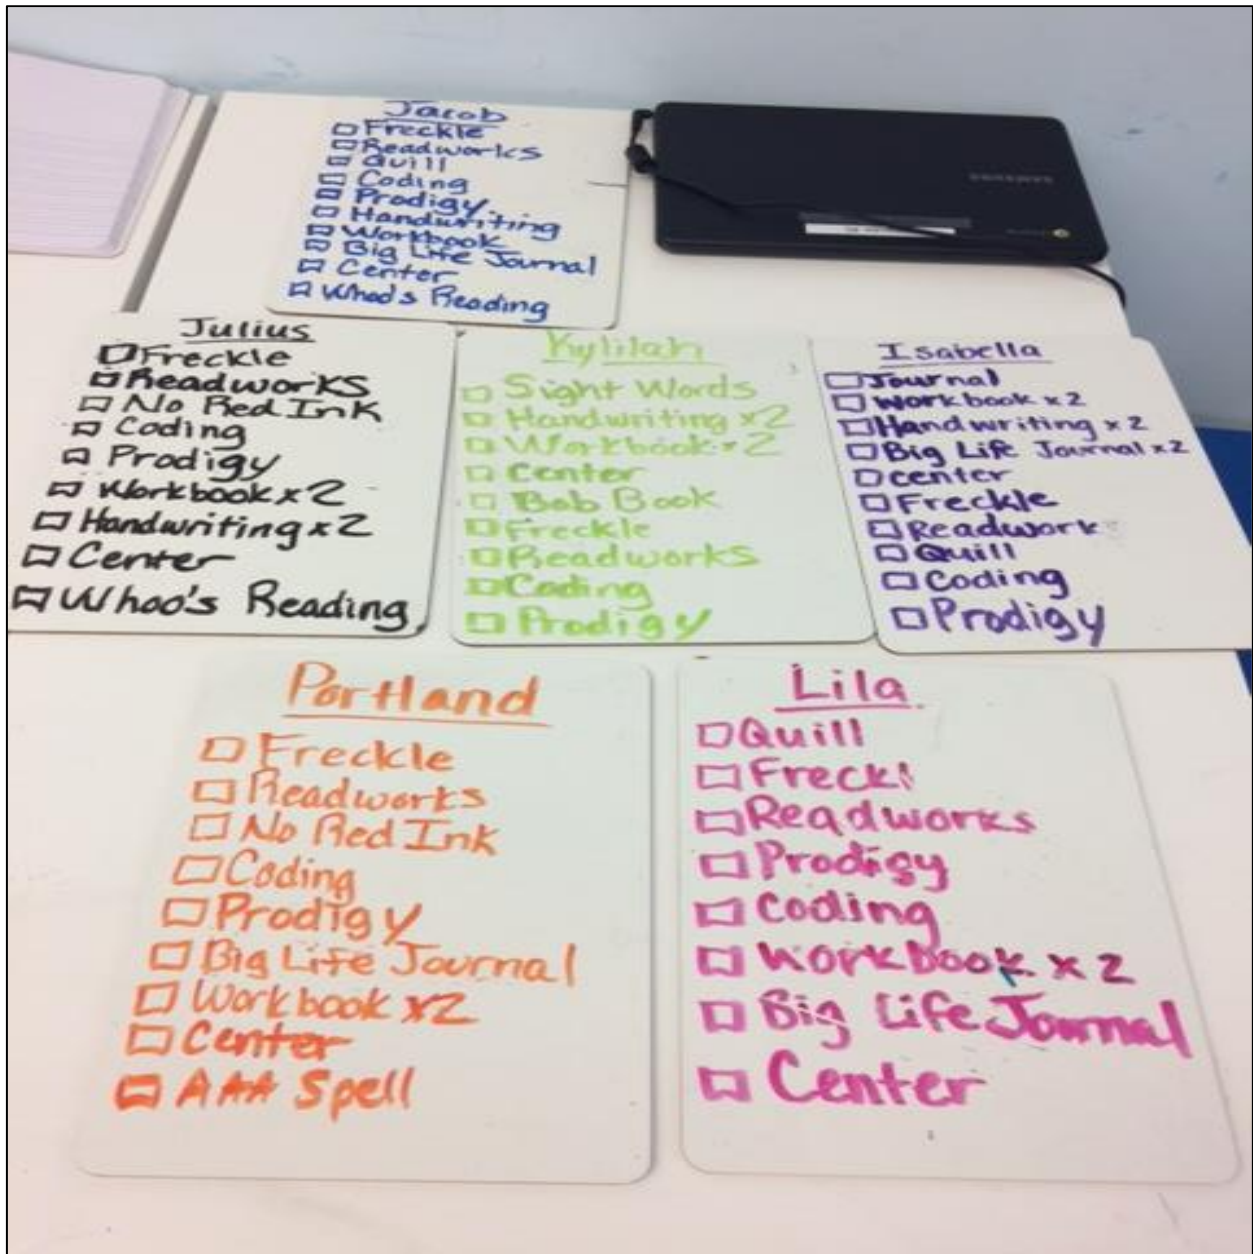 Jacob
Freckle
Readworks
Quill
Coding
Prodigy
Handwriting
Workbook
Big Life Journal
Center
Whoo's Reading
SAMSUNG
Julius
Freckle
Readworks
No Red Ink
Coding
Prodigy
Workbook x 2
Handwriting x 2
Center
Whoo's Reading
Kylilah
Sight Words
Handwriting x2
Workbook x 2
Center
Bob Book
Freckle
Readworks
Coding
Prodigy
Isabella
Journal
Workbook x 2
Handwriting x 2
Big Life Journal x2
Center
Freckle
Readwork
Quill
Coding
Prodigy
Portland
Freckle
Readworks
No Red Ink
Coding
Prodigy
Big Life Journal
Workbook x2
Center
AAA Spell
Lila
Quill
Freckl
Readworks
Prodigy
Coding
Workbook x 2
Big Life Journal
Center